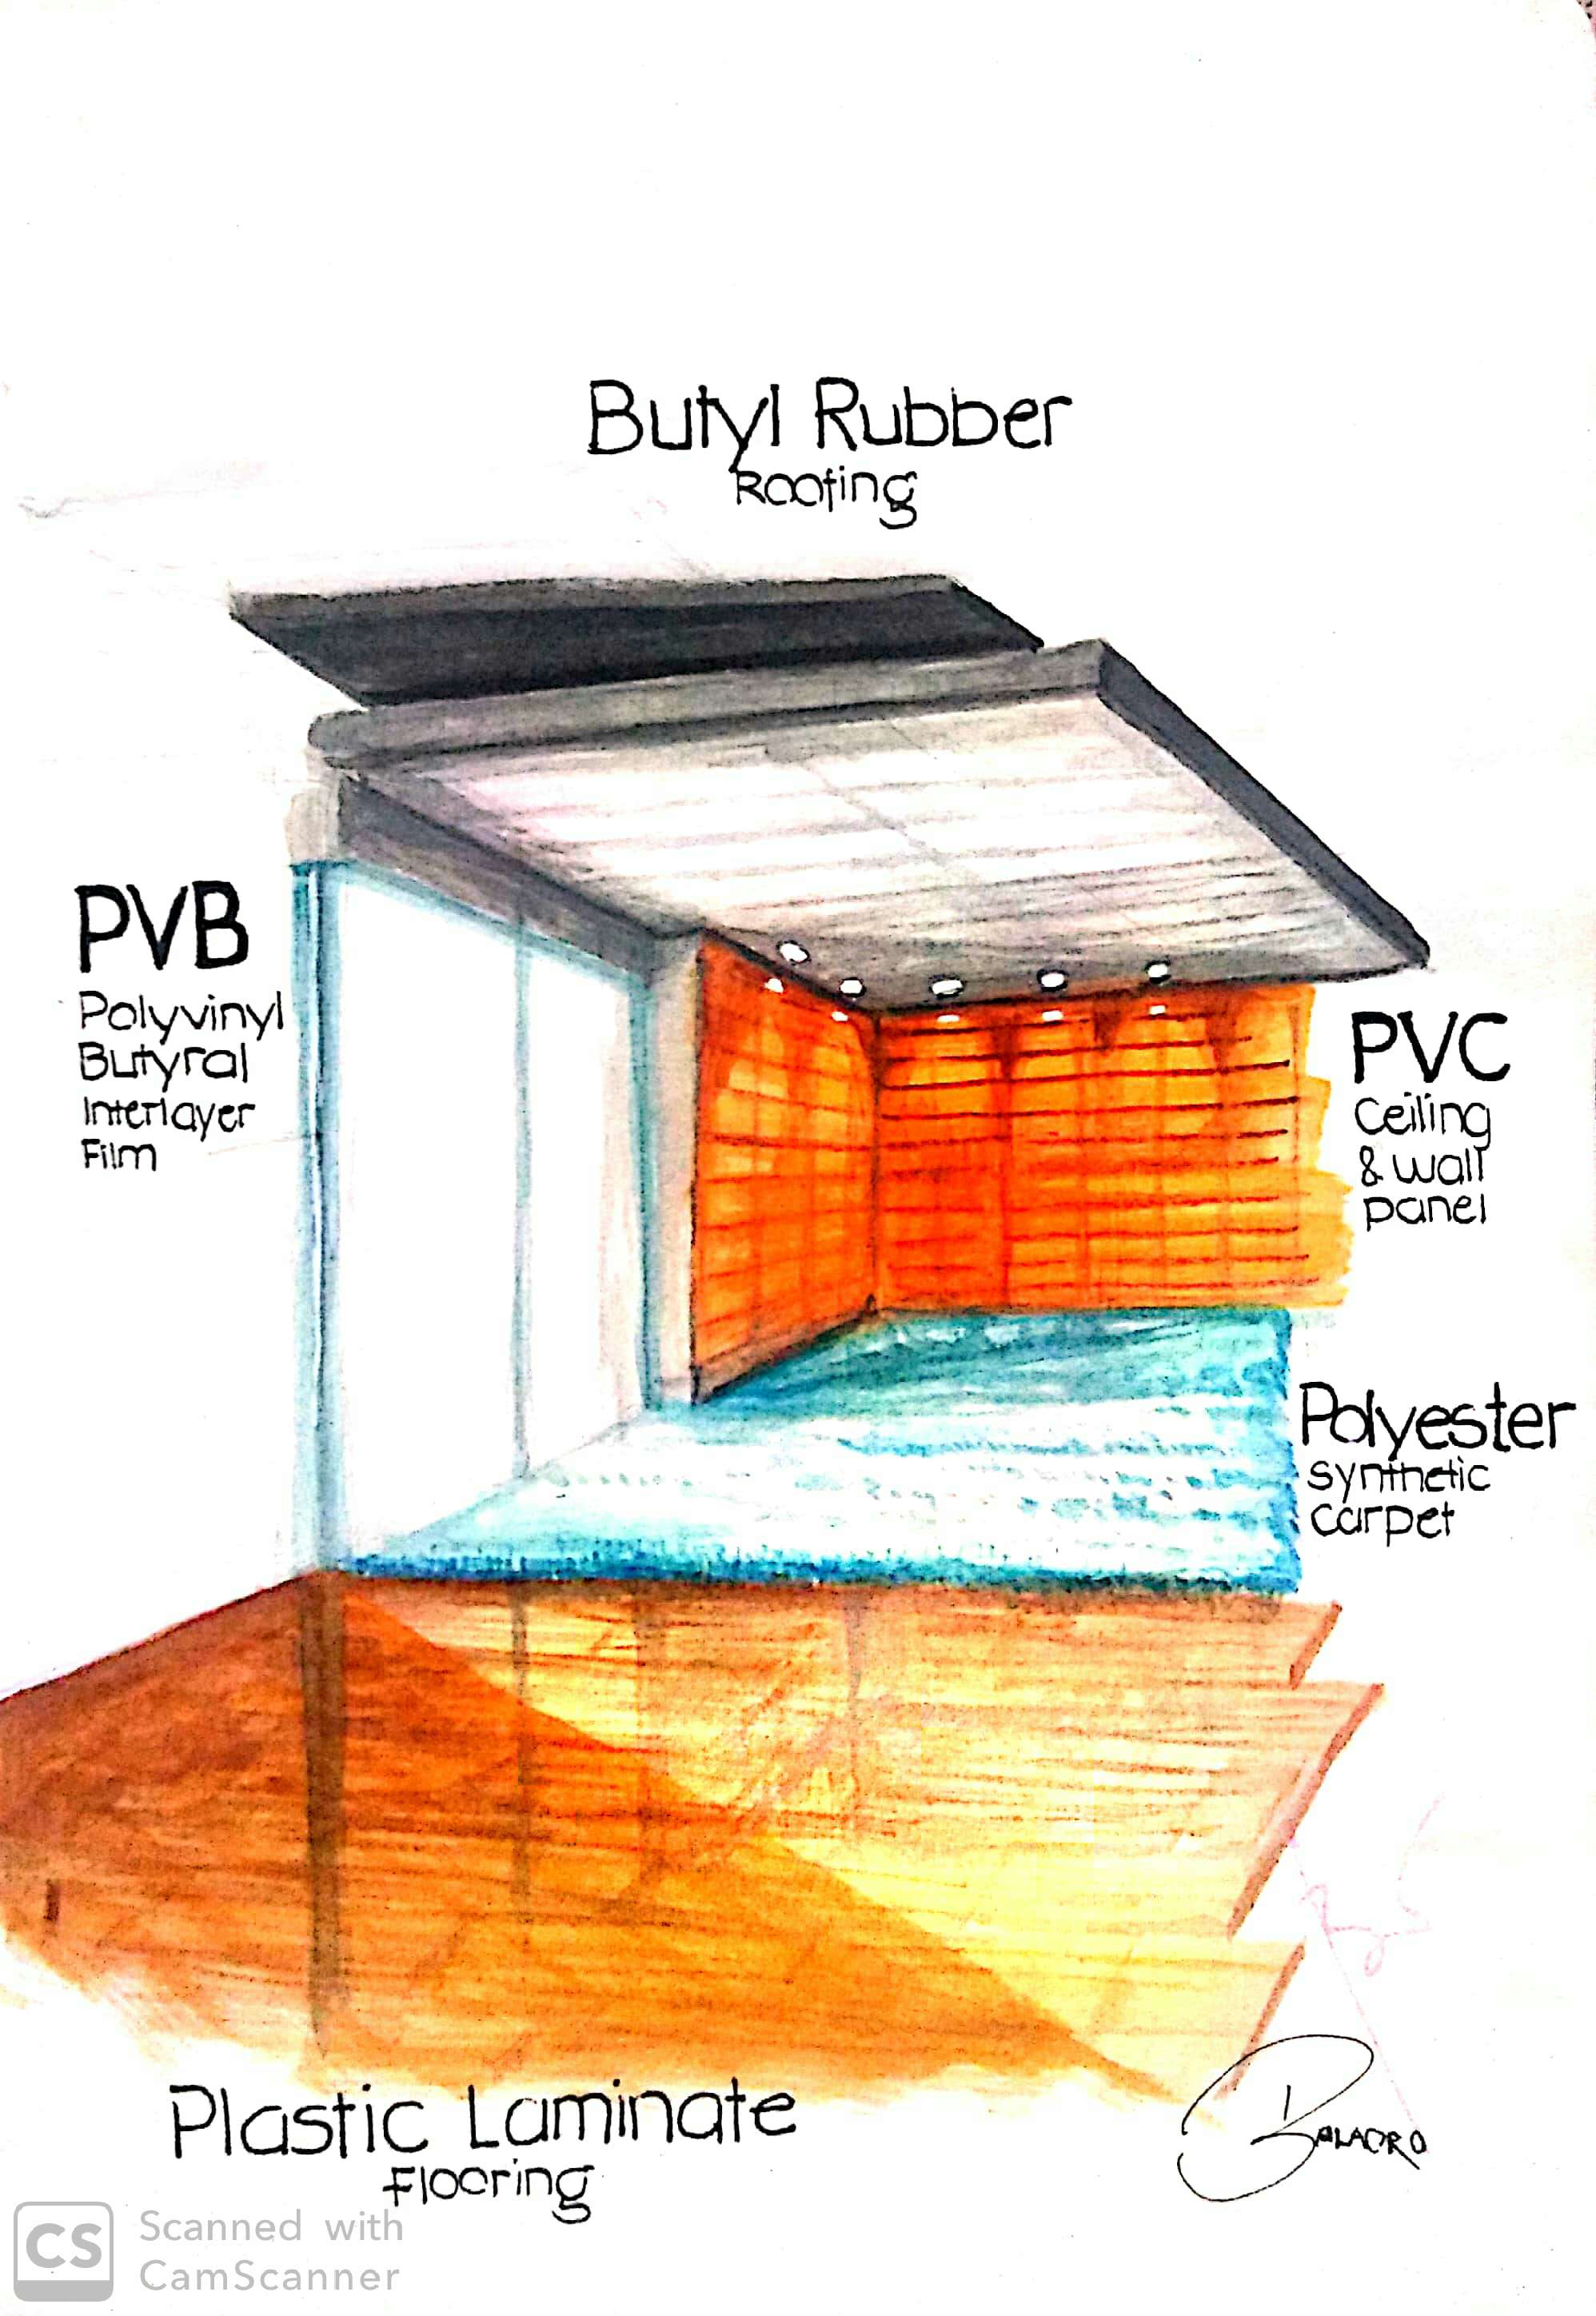 Butyl Rubber
Roofing
PVB
Polyvinyl
Butyral
Interlayer
Film
PVC
Ceiling
& wall
panel
Polyester
synthetic
carpet
Plastic Laminate
Flooring
CS
Scanned with
CamScanner